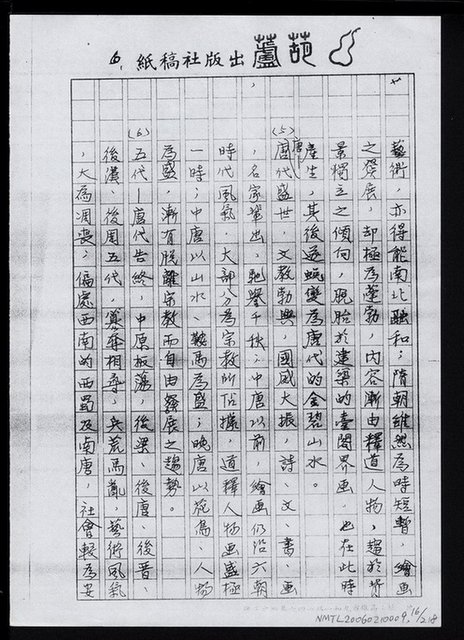 葫蘆出版社稿紙 6.
藝術，亦得能南北融和；隋朝雖然為時短暫，繪畫
之發展，却極為蓬勃，內容漸由釋道人物，趨於背
景獨立之傾向，脫胎於建築的臺閣界画，也在此時
產生，其後遂蛻變為唐代的金碧山水。
(5) 唐代盛世，文教勃興，國威大振，詩、文、書、画
，名家輩出，馳譽千秋；中唐以前，繪画仍沿六朝
時代風氣，大部分為宗教所佔據，道釋人物画盛極
一時；中唐以山水、鞍馬為盛；晚唐以花鳥、人物
為盛，漸有脫離宗教而自由發展之趨勢。
(6) 五代—唐代告終，中原板蕩，後梁、後唐、後晋、
後漢、後周五代，篡奪相尋，兵荒馬亂，藝術風氣
，大為凋喪；偏處西南的西蜀及南唐，社會較為安
NMTL20060210009, 16/218